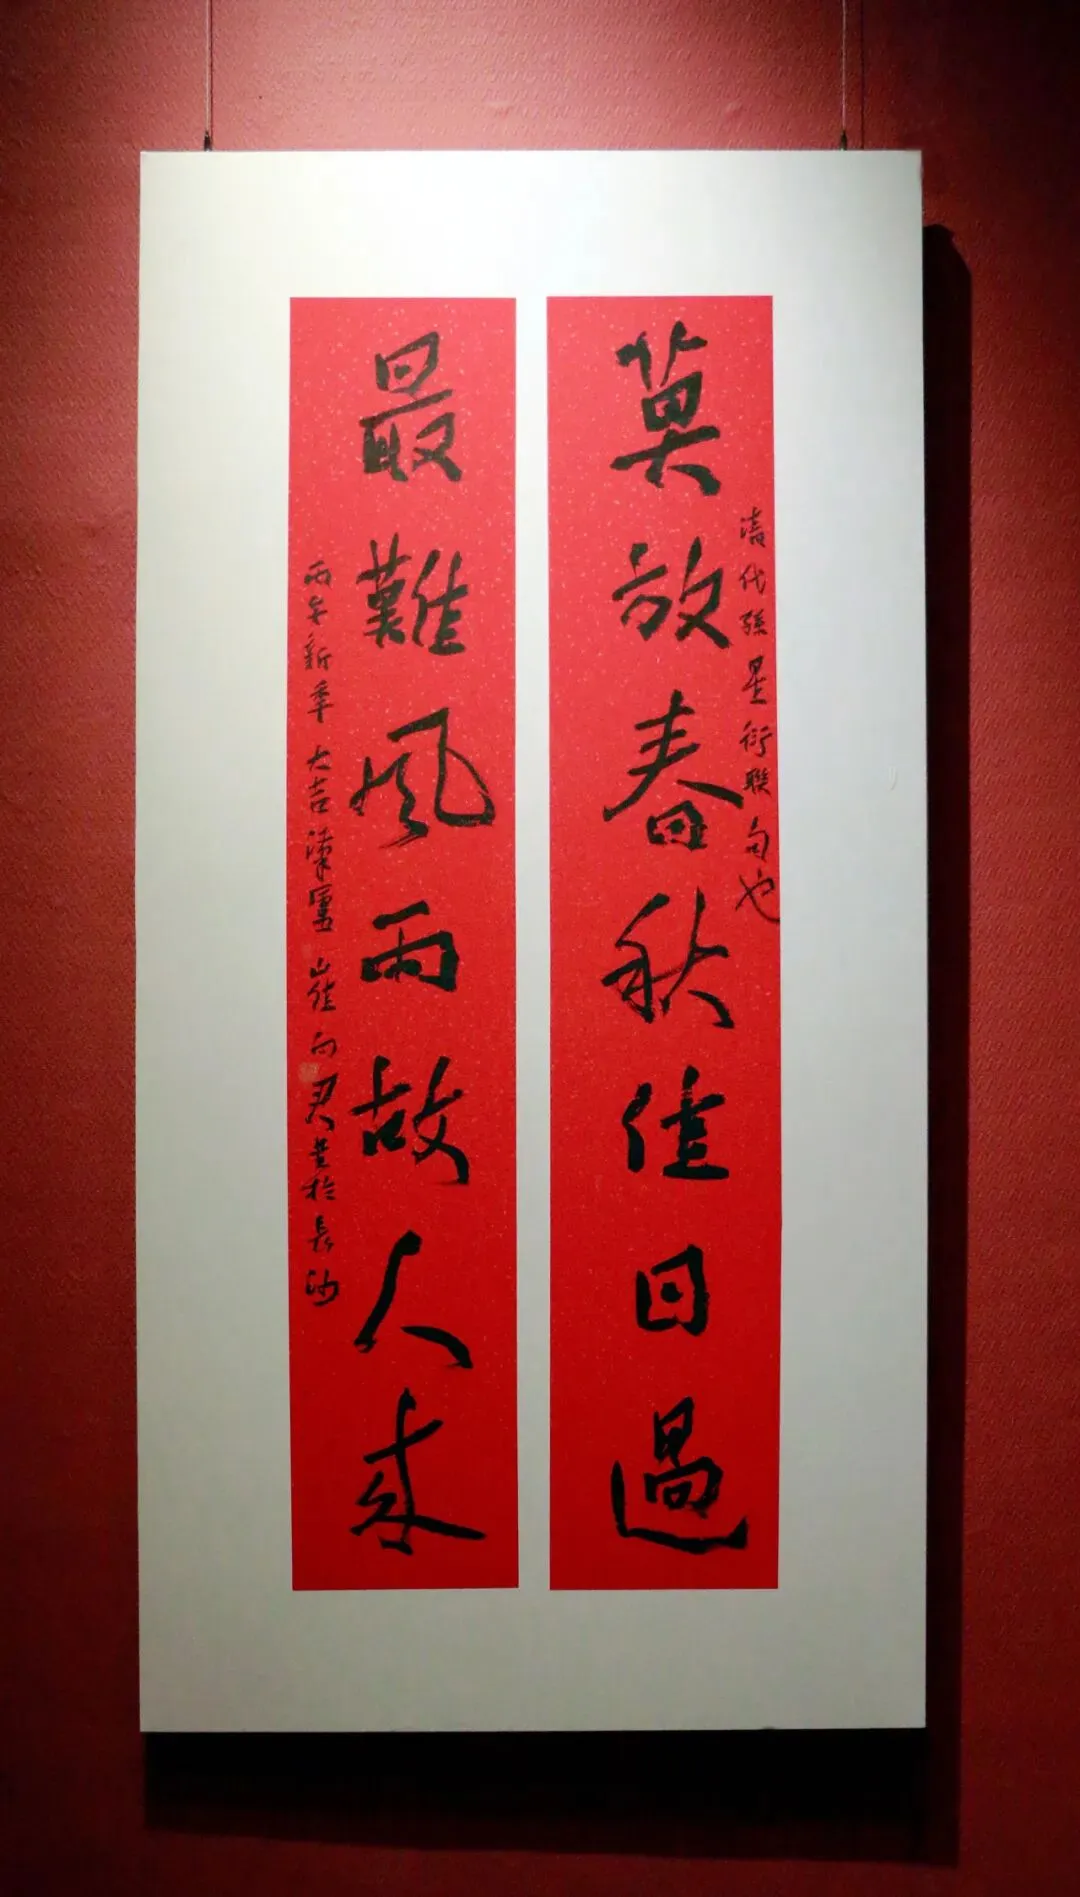 莫放春秋佳日過
清代孫星衍聯句也
最難風雨故人來
丙午新年大吉 崔向君書於長沙